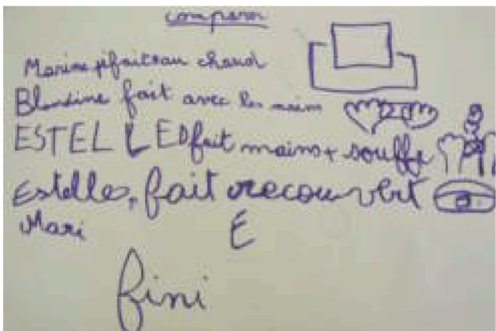 comparer
Marine fait au chaud
Blandine fait avec les mains
ESTELLE fait mains + souffle
Estelle, fait recouvert
Mari E
fini